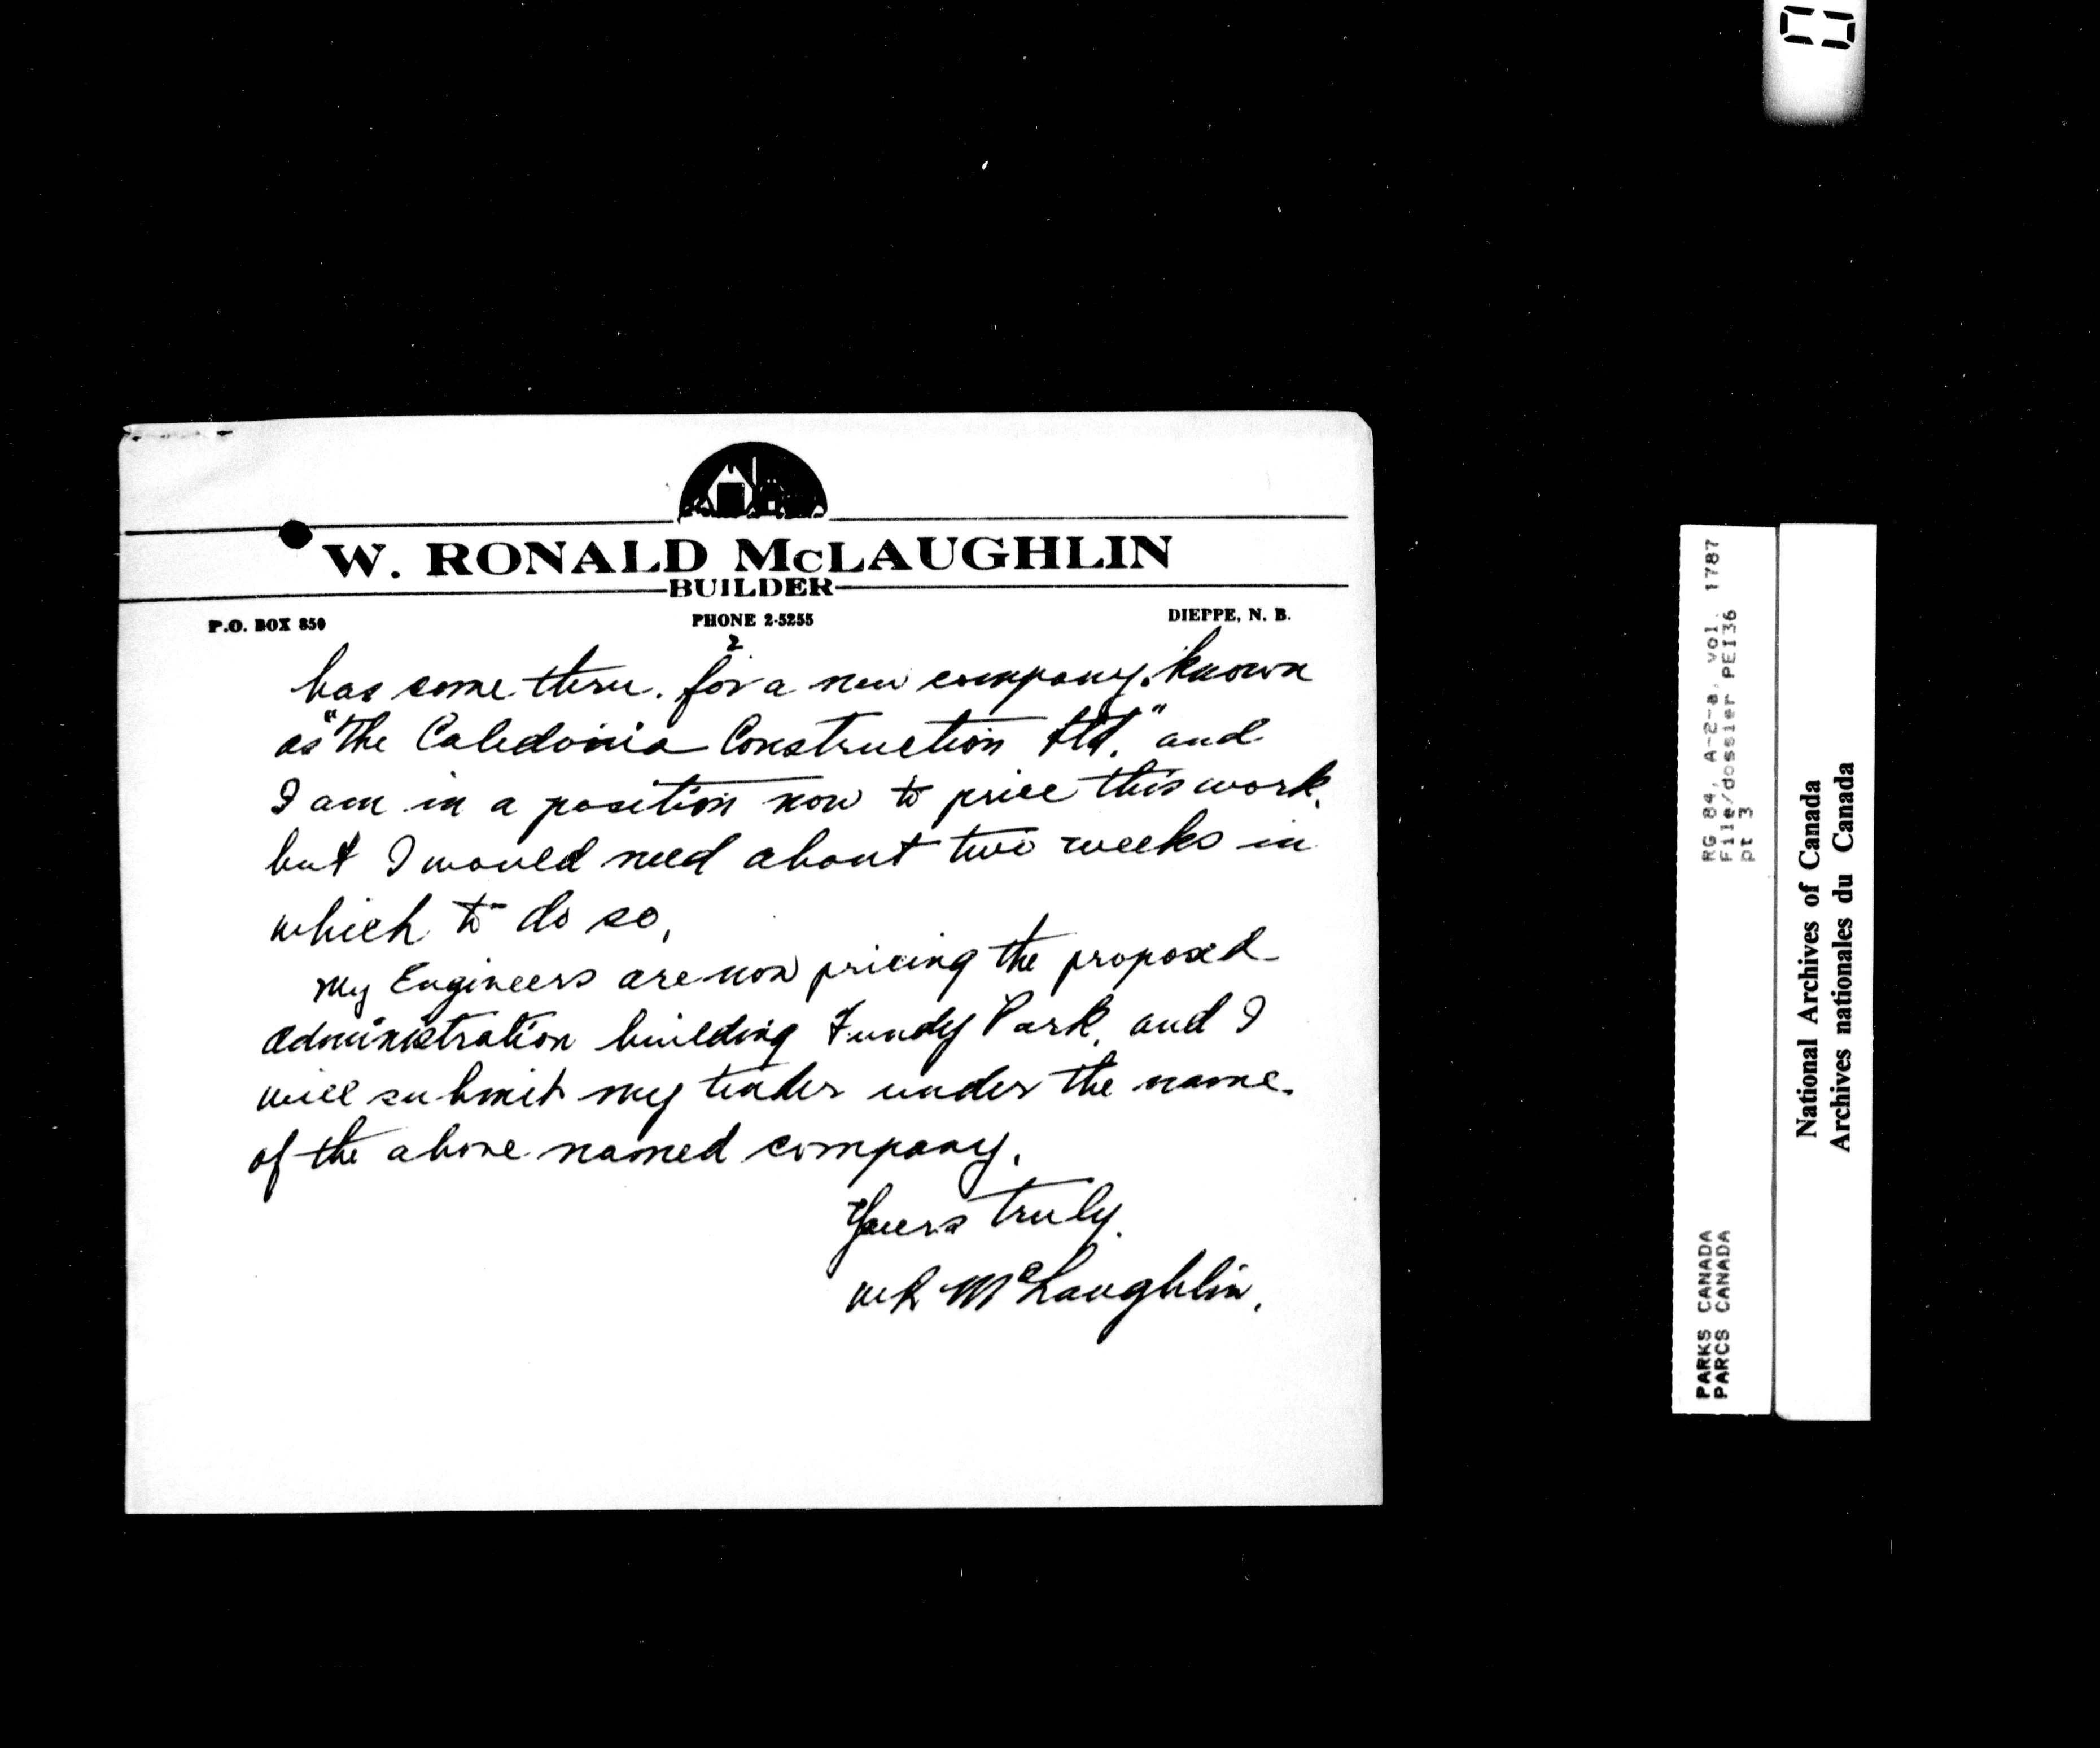 W. RONALD McLAUGHLIN
BUILDER
P.O. BOX 850 PHONE 2-5255 DIEPPE, N. B.
2
has come thru. for a new company. known
as "The Caledonia Construction Ltd." and
I am in a position now to price this work.
but I would need about two weeks in
which to do so.
My Engineers are now pricing the proposed
administration building Fundy Park, and I
will submit my tender under the name.
of the above named company.
Yours truly.
W R McLaughlin.
PARKS CANADA RG 84, A-2-a, vol. 1787
PARCS CANADA File/dossier PEI36
pt 3
National Archives of Canada
Archives nationales du Canada